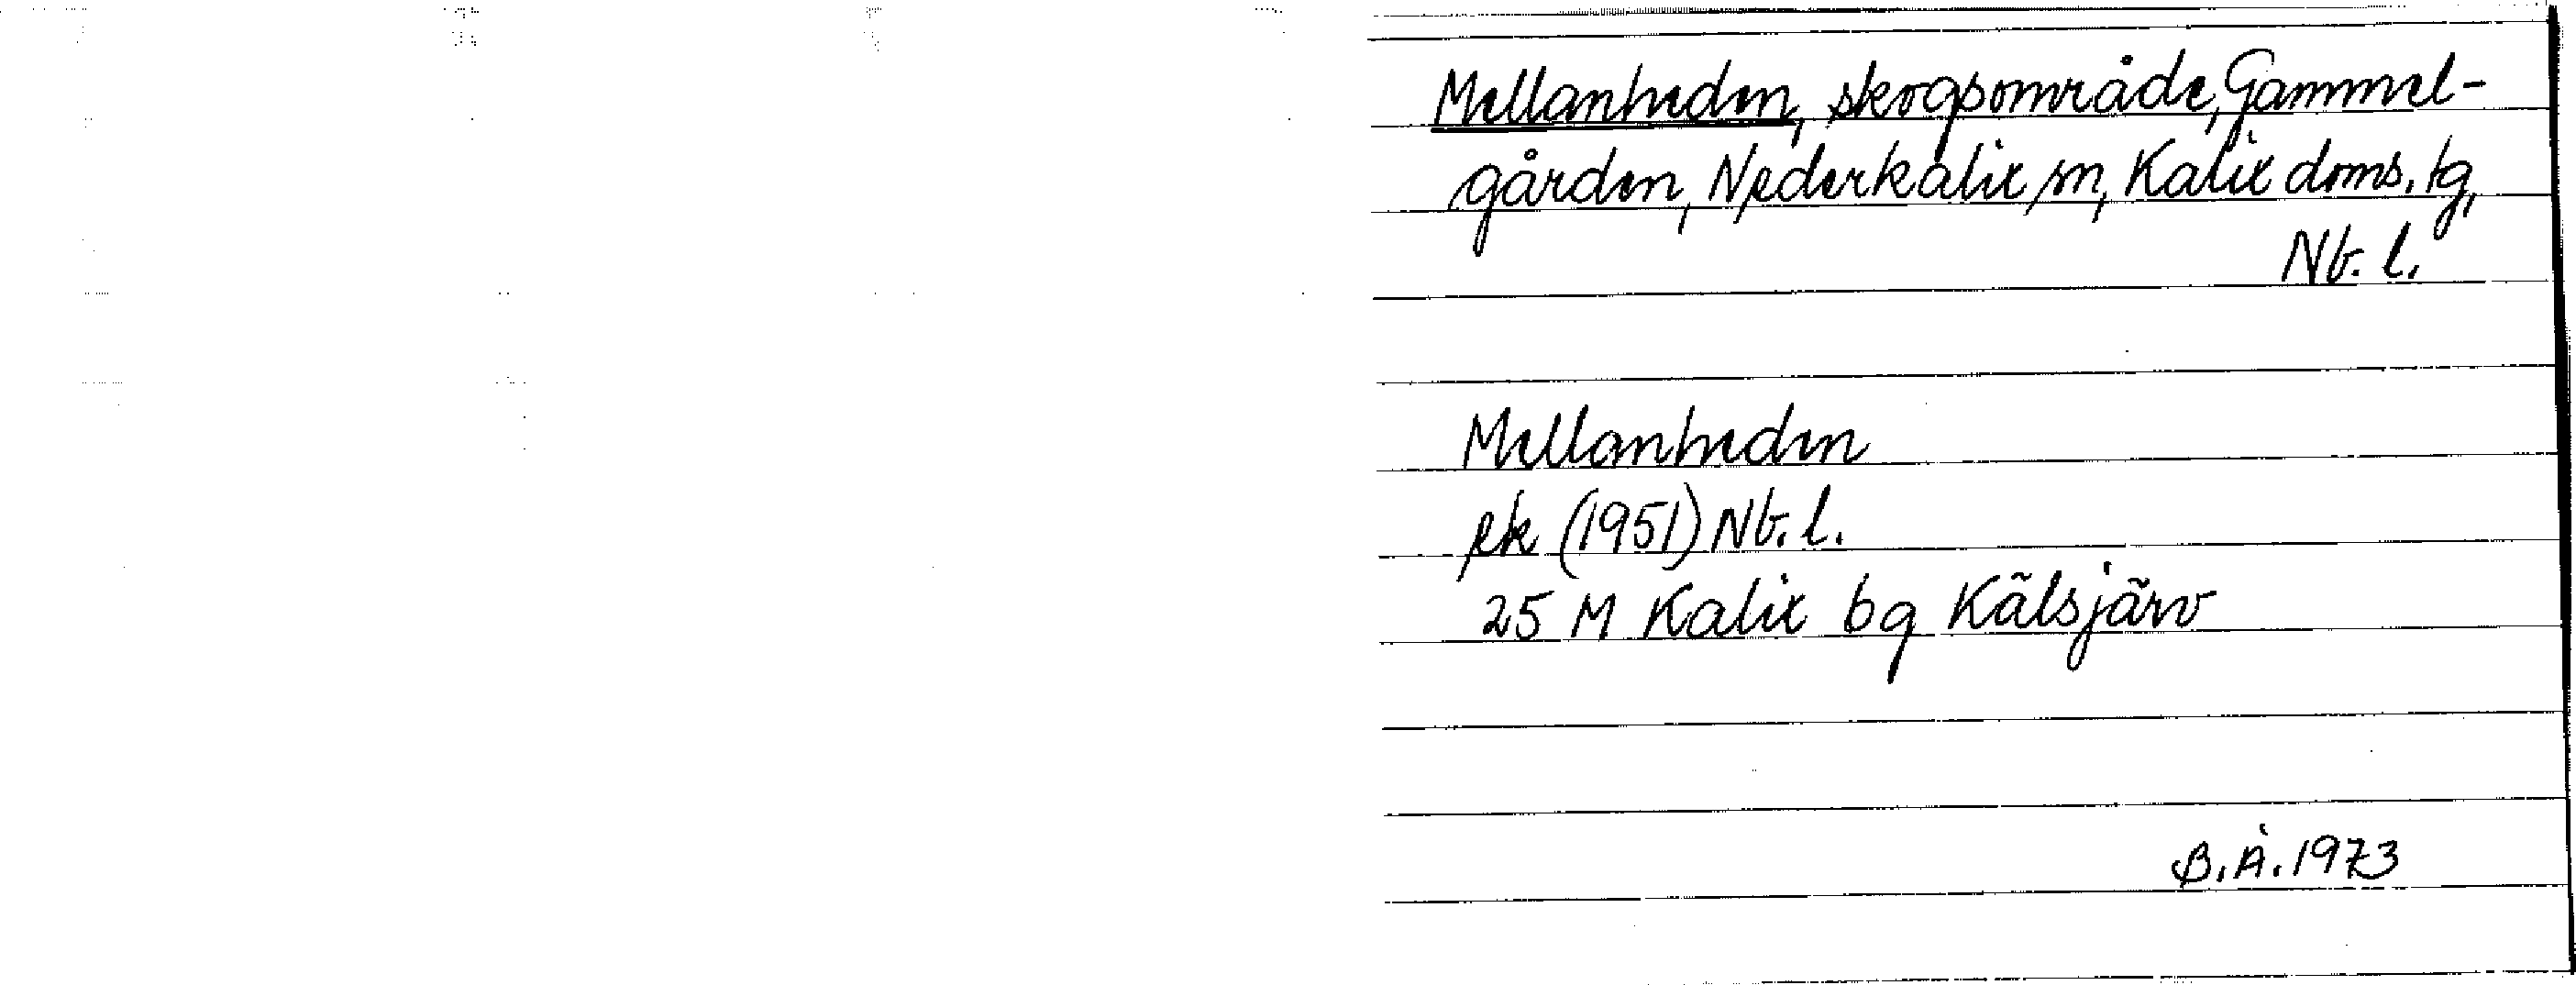 Mellanheden, skogsområde, Gammel-
gården, Nederkalix sn, Kalix doms. tg,
Nb. l.
Mellanheden
ek (1951) Nb. l.
25 M Kalix bg Kälsjärv
B. Å. 1973